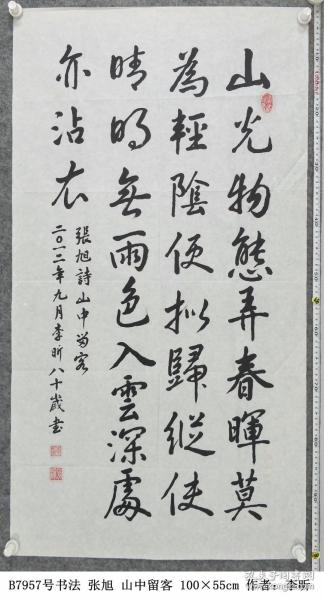 山光物態弄春暉莫
為輕陰便拟歸縱使
晴明無雨色入雲深處
亦沾衣
張旭詩山中留客
二〇一二年九月李昕八十歲書
B7957号书法 张旭 山中留客 100×55cm 作者：李昕